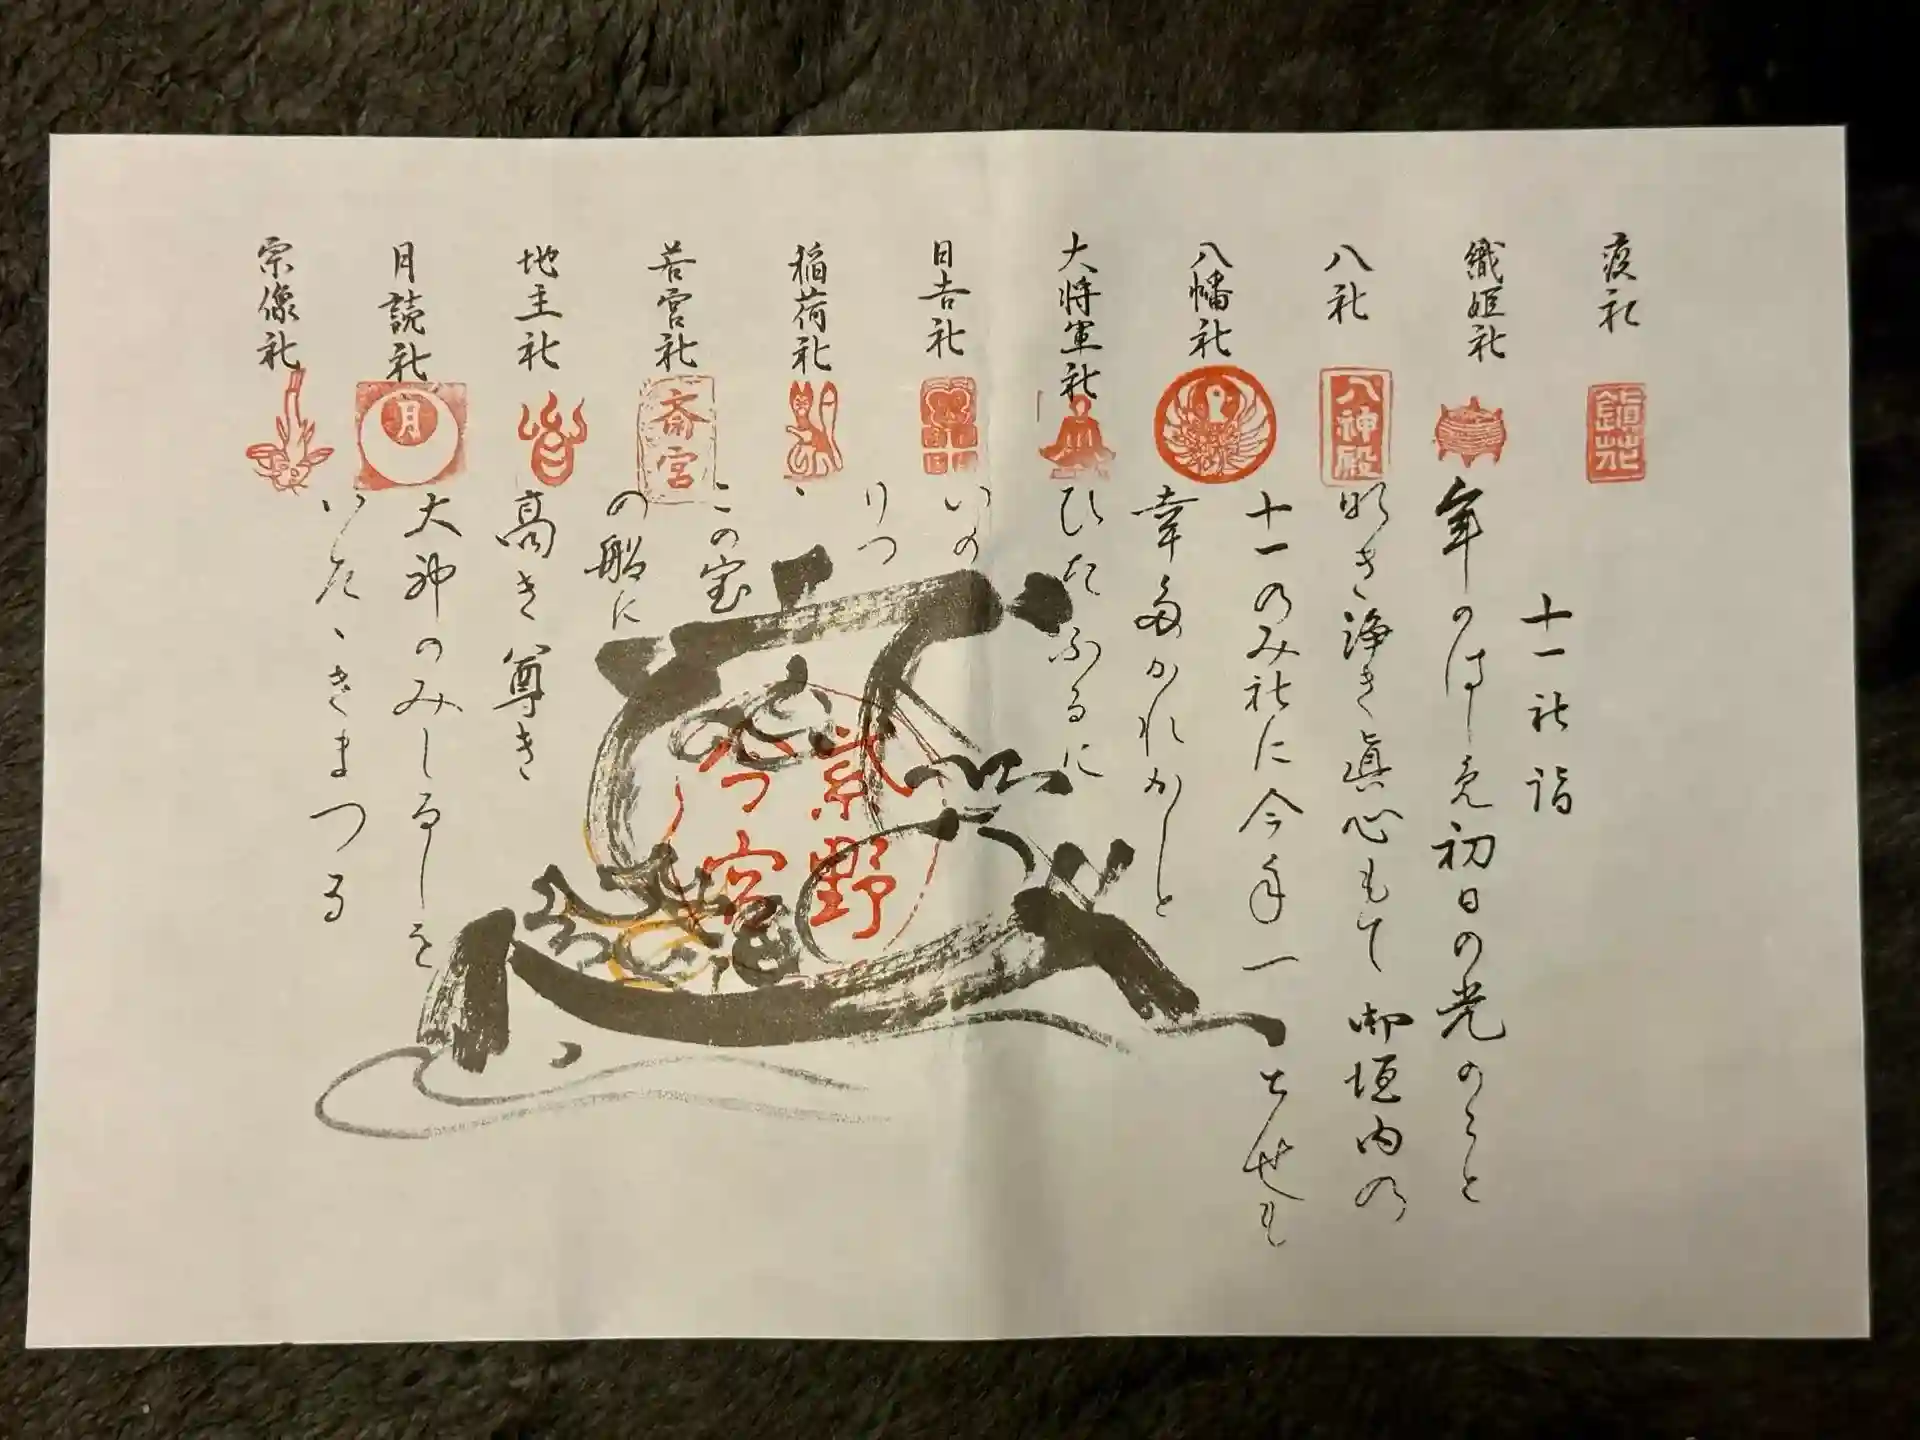 疫社
織姫社
八社
八幡社
大将軍社
日吉社
稲荷社
若宮社
地主社
月読社
宗像社
鎮花
八神殿
斎宮
月
十一社詣
年のはしめ初日の光のこと
明き浄き真心もて御垣内の
十一のみ社に今年一とせも
幸多かれかしと
ひたふるに
いのりつゝ
この宝の船に
高き尊き
大神のみしるしを
いたゝきまつる
紫野
今宮